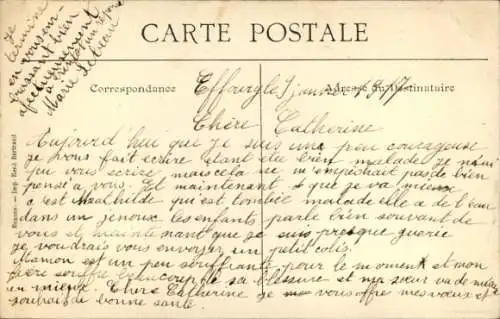 CARTE POSTALE
Correspondance
Adresse du Destinataire
Effourgle 1 janvier 1917
Chère Catherine
Aujourd'hui que je suis une peu courageuse
je vous fait écrire étant été bien malade je n'ai
pu vous écrire mais cela ne m'empêchait pas de bien
pensé a vous. Et maintenant que je va mieux
c'est Mathilde qui est tombée malade elle a de l'eau
dans un jenoux les enfants parle bien souvant de
vous et maintenant que je suis presque guérie
je voudrais vous envoyer un petit colis.
Maman est un peu souffrante pour le moment et mon
père souffre beaucoup de sa blessure et ma sœur va de mieux
en mieux. Chère Catherine je vous offre mes vœux et
souhaits de bonne santé.
Je
termine
en vous em-
brassant bien
affectueusement
Marie Lebeau